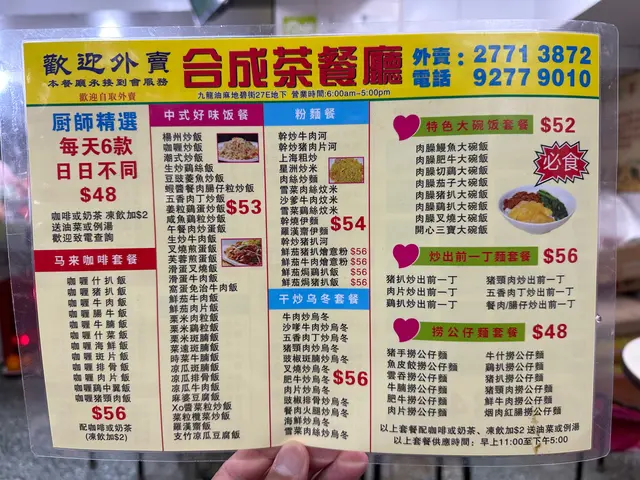 歡迎外賣
本餐廳承接到會服務
歡迎自取外賣
合成茶餐廳
九龍油麻地碧街27E地下 營業時間:6:00am~5:00pm
外賣：2771 3872
電話 9277 9010
厨師精選
每天6款
日日不同
$48
咖啡或奶茶 凍飲加$2
送油菜或例湯
歡迎致電查詢
马来咖啡套餐
咖喱什扒飯
咖喱猪扒飯
咖喱牛肉飯
咖喱鸡扒飯
咖喱牛腩飯
咖喱什菜飯
咖喱海鮮飯
咖喱斑片飯
咖喱排骨飯
咖喱肉片飯
咖喱鷄中翼飯
咖喱猪頸肉飯
$56
配咖啡或奶茶
(凍飲加$2)
中式好味饭餐
楊州炒飯
咖喱炒飯
潮式炒飯
生炒鷄絲飯
豆豉鯪魚炒飯
蝦醬餐肉腸仔粒炒飯
五香肉丁炒飯
姜粒鷄蛋炒飯
咸魚鷄粒炒飯
午餐肉炒蛋飯
生炒牛肉飯
叉燒煎蛋飯
芙蓉煎蛋飯
滑蛋叉燒飯
滑蛋牛肉飯
窩蛋免治牛肉飯
鮮茄牛肉飯
鮮茄肉片飯
粟米肉粒飯
粟米鷄粒飯
粟米斑腩飯
菜遠斑腩飯
時菜牛腩飯
凉瓜斑腩飯
凉瓜排骨飯
凉瓜牛肉飯
麻婆豆腐飯
Xo醬菜粒炒飯
菜粒欖菜炒飯
羅漢齋飯
支竹凉瓜豆腐飯
$53
粉麵餐
幹炒牛肉河
幹炒猪肉片河
上海粗炒
星洲炒米
肉絲炒麵
雪菜肉絲炆米
沙爹牛肉炆米
雪菜鷄絲炆米
幹燒伊麵
羅漢齋伊麵
幹炒猪扒河
鮮茄猪扒燴意粉 $56
鮮茄牛肉燴意粉 $56
鮮茄焗鷄扒飯 $56
鮮茄焗猪扒飯 $56
$54
干炒乌冬套餐
牛肉炒烏冬
沙爹牛肉炒烏冬
五香肉丁炒烏冬
猪頸肉炒烏冬
豉椒斑腩炒烏冬
叉燒炒烏冬
肥牛炒烏冬
肉片炒烏冬
豉椒排骨炒烏冬
餐肉火腿炒烏冬
海鮮炒烏冬
雪菜肉絲炒烏冬
$56
特色大碗饭套餐 $52
肉臊鰻魚大碗飯
肉臊肥牛大碗飯
肉臊切鷄大碗飯
肉臊茄子大碗飯
肉臊猪扒大碗飯
肉臊鷄扒大碗飯
肉臊叉燒大碗飯
開心三寶大碗飯
必食
炒出前一丁麵套餐 $56
猪扒炒出前一丁 猪頸肉炒出前一丁
肉片炒出前一丁 五香肉丁炒出前一丁
鷄扒炒出前一丁 餐肉/腸仔炒出前一丁
捞公仔麵套餐 $48
猪手撈公仔麵 牛什撈公仔麵
魚皮餃撈公仔麵 鷄扒撈公仔麵
雲吞撈公仔麵 猪扒撈公仔麵
牛腩撈公仔麵 猪頸肉撈公仔麵
肥牛撈公仔麵 鮮牛肉撈公仔麵
肉片撈公仔麵 烟肉紅腸撈公仔麵
以上套餐配咖啡或奶茶、凍飲加$2 送油菜或例湯
以上套餐供應時間：早上11:00至下午5:00